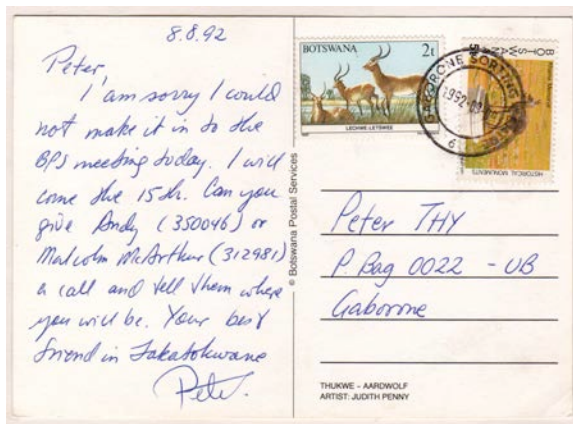 8.8.92
Peter,
I am sorry I could
not make it in to the
BPS meeting today. I will
come the 15th. Can you
give Andy (350046) or
Malcolm McArthur (312981)
a call and tell them where
you will be. Your best
friend in Takatokwane
Peter.
BOTSWANA 2t
LECHWE LETSWEE
BOTSWANA
HISTORICAL MONUMENTS
GABORONE SORTING
1992
© Botswana Postal Services
Peter THY
P. Bag 0022 - UB
Gaborone
THUKWE – AARDWOLF
ARTIST: JUDITH PENNY